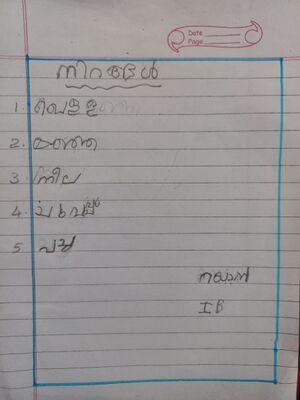 Date
Page
നിറങ്ങൾ
1. വെള്ള
2. മഞ്ഞ
3 നീല
4. ചുവപ്പ്
5 പച്ച
IB